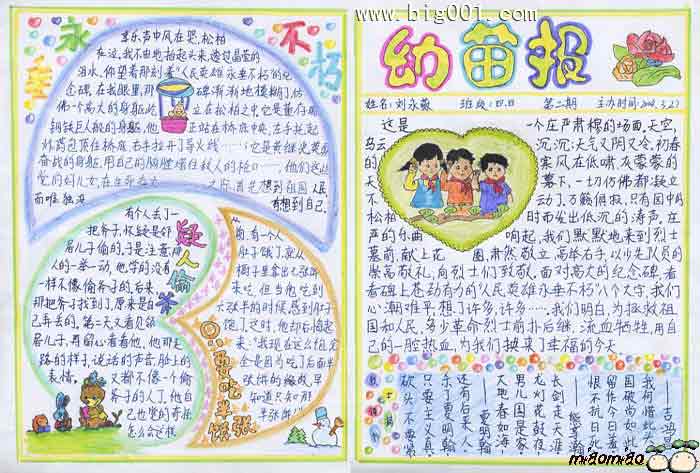 www.big001.com
永
垂
不
朽
哀乐声中风在哭,松柏
在泣,我不由地抬起头来,透过晶莹的
泪水,仰望着那刻着"人民英雄永垂不朽"的纪
念碑,在我眼里,那
碑渐渐地模糊了,仿
佛一个高大的身躯屹
立在松柏之中,它是董存瑞
钢铁巨人般的身躯,他
正站在桥底中央,左手托起
炸药包顶住桥底,右手拉开了导火线
奋战的身躯,用自己的胸膛堵住敌人的枪口
党的好儿女,在生死
首先想到祖国人民
而唯独没
有想到自己.
疑人偷斧
有个人丢了一
把斧子,怀疑是邻
居儿子偷的,于是注意那
人的一举一动,他觉的没有
一样不像偷斧子的,后来,
那把斧子找到了,原来是自
己弄丢的,第二天又看见邻
居儿子,再留心看看他,他那走
路的样子,说话的声音,脸上的
表情,
又都不像一个偷
斧子的人了,他自
己也觉的奇怪
怎么会这样
只要吃半张饼
有一个人
肚子饿了,就从
橱子里拿出七张饼
来吃,但当他吃到
六张半的时候,感到肚子
饱了,这时,他却后悔起
来:"我现在这样饱,完
全是因为吃了后面半
张饼的缘故,早
知道只吃那
半张饼
幼苗报
姓名:刘永薇 班级:四.四 第二期 主办时间:2002.3.27
这是
一个庄严肃穆的场面,天空,
乌云
沉沉,天气又阴又冷,初春
的
寒风在低啸,灰蒙蒙的
天
幕下,一切仿佛都凝立
不
动了,万籁俱寂,只有园中的
松柏
时而发出低沉的涛声,在
严的乐曲
响起,我们默默地来到烈士
墓前,献上花
圈,肃然敬立,高举右手,以少先队员的
崇高敬礼,向烈士们致敬,面对高大的纪念碑,看
着碑上苍劲有力的"人民英雄永垂不朽"八个大字,我们
心潮难平,想了许多,许多…,我们明白,为拯救祖
国和人民,多少革命烈士前扑后继,流血牺牲,用自
己的一腔热血,为我们换来了幸福的今天
我何惜此头
国破尚如此
留作今日羞
恨不抗日死
吉鸿
长剑倚天鸣
龙灯花鼓夜
男儿国是家
大地春如海
熊亨瀚
还有后来人
杀了夏明翰
只要主义真
砍头不要紧
夏明翰
miaomiao